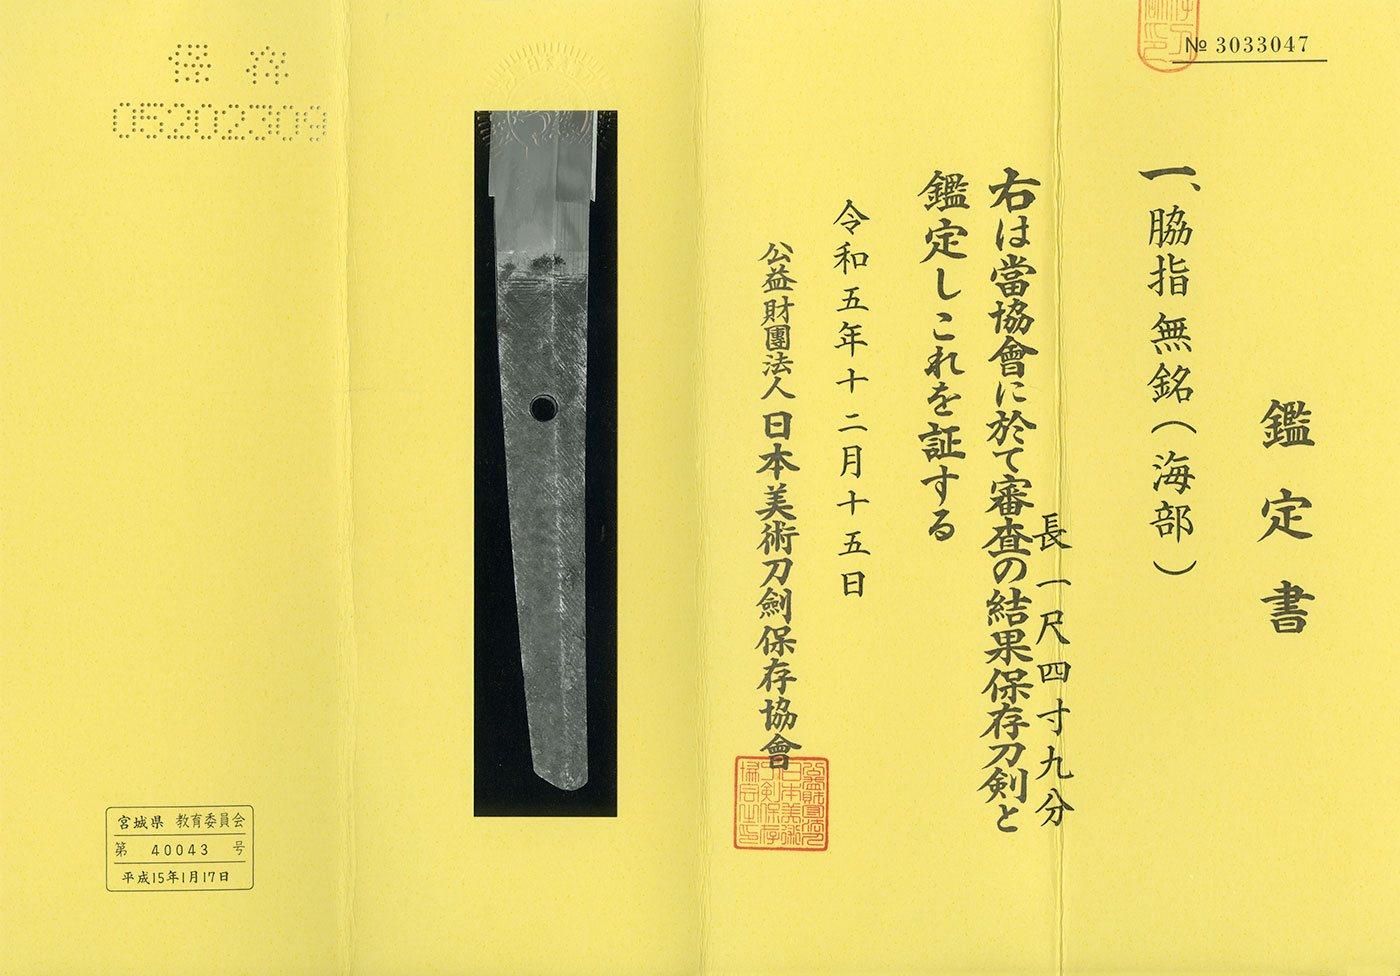 № 3033047
鑑定書
一、脇指無銘（海部）
長一尺四寸九分
右は當協會に於て審査の結果保存刀剣と
鑑定しこれを証する
令和五年十二月十五日
公益財團法人日本美術刀劍保存協會
保存
05202309
宮城県 教育委員会
第 40043 号
平成15年1月17日